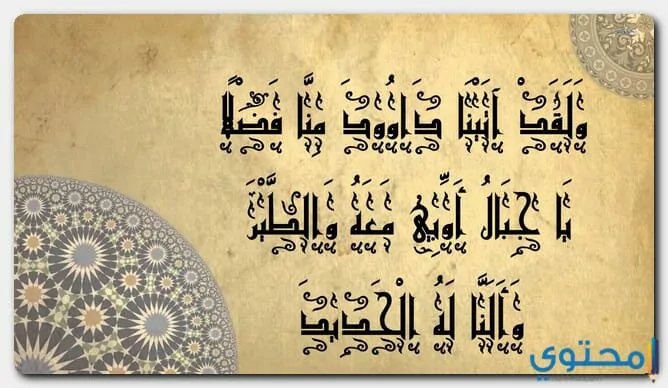 وَلَقَدْ آتَيْنَا دَاوُودَ مِنَّا فَضْلًا
يَا جِبَالُ أَوِّبِي مَعَهُ وَالطَّيْرَ
وَأَلَنَّا لَهُ الْحَدِيدَ
محتوى